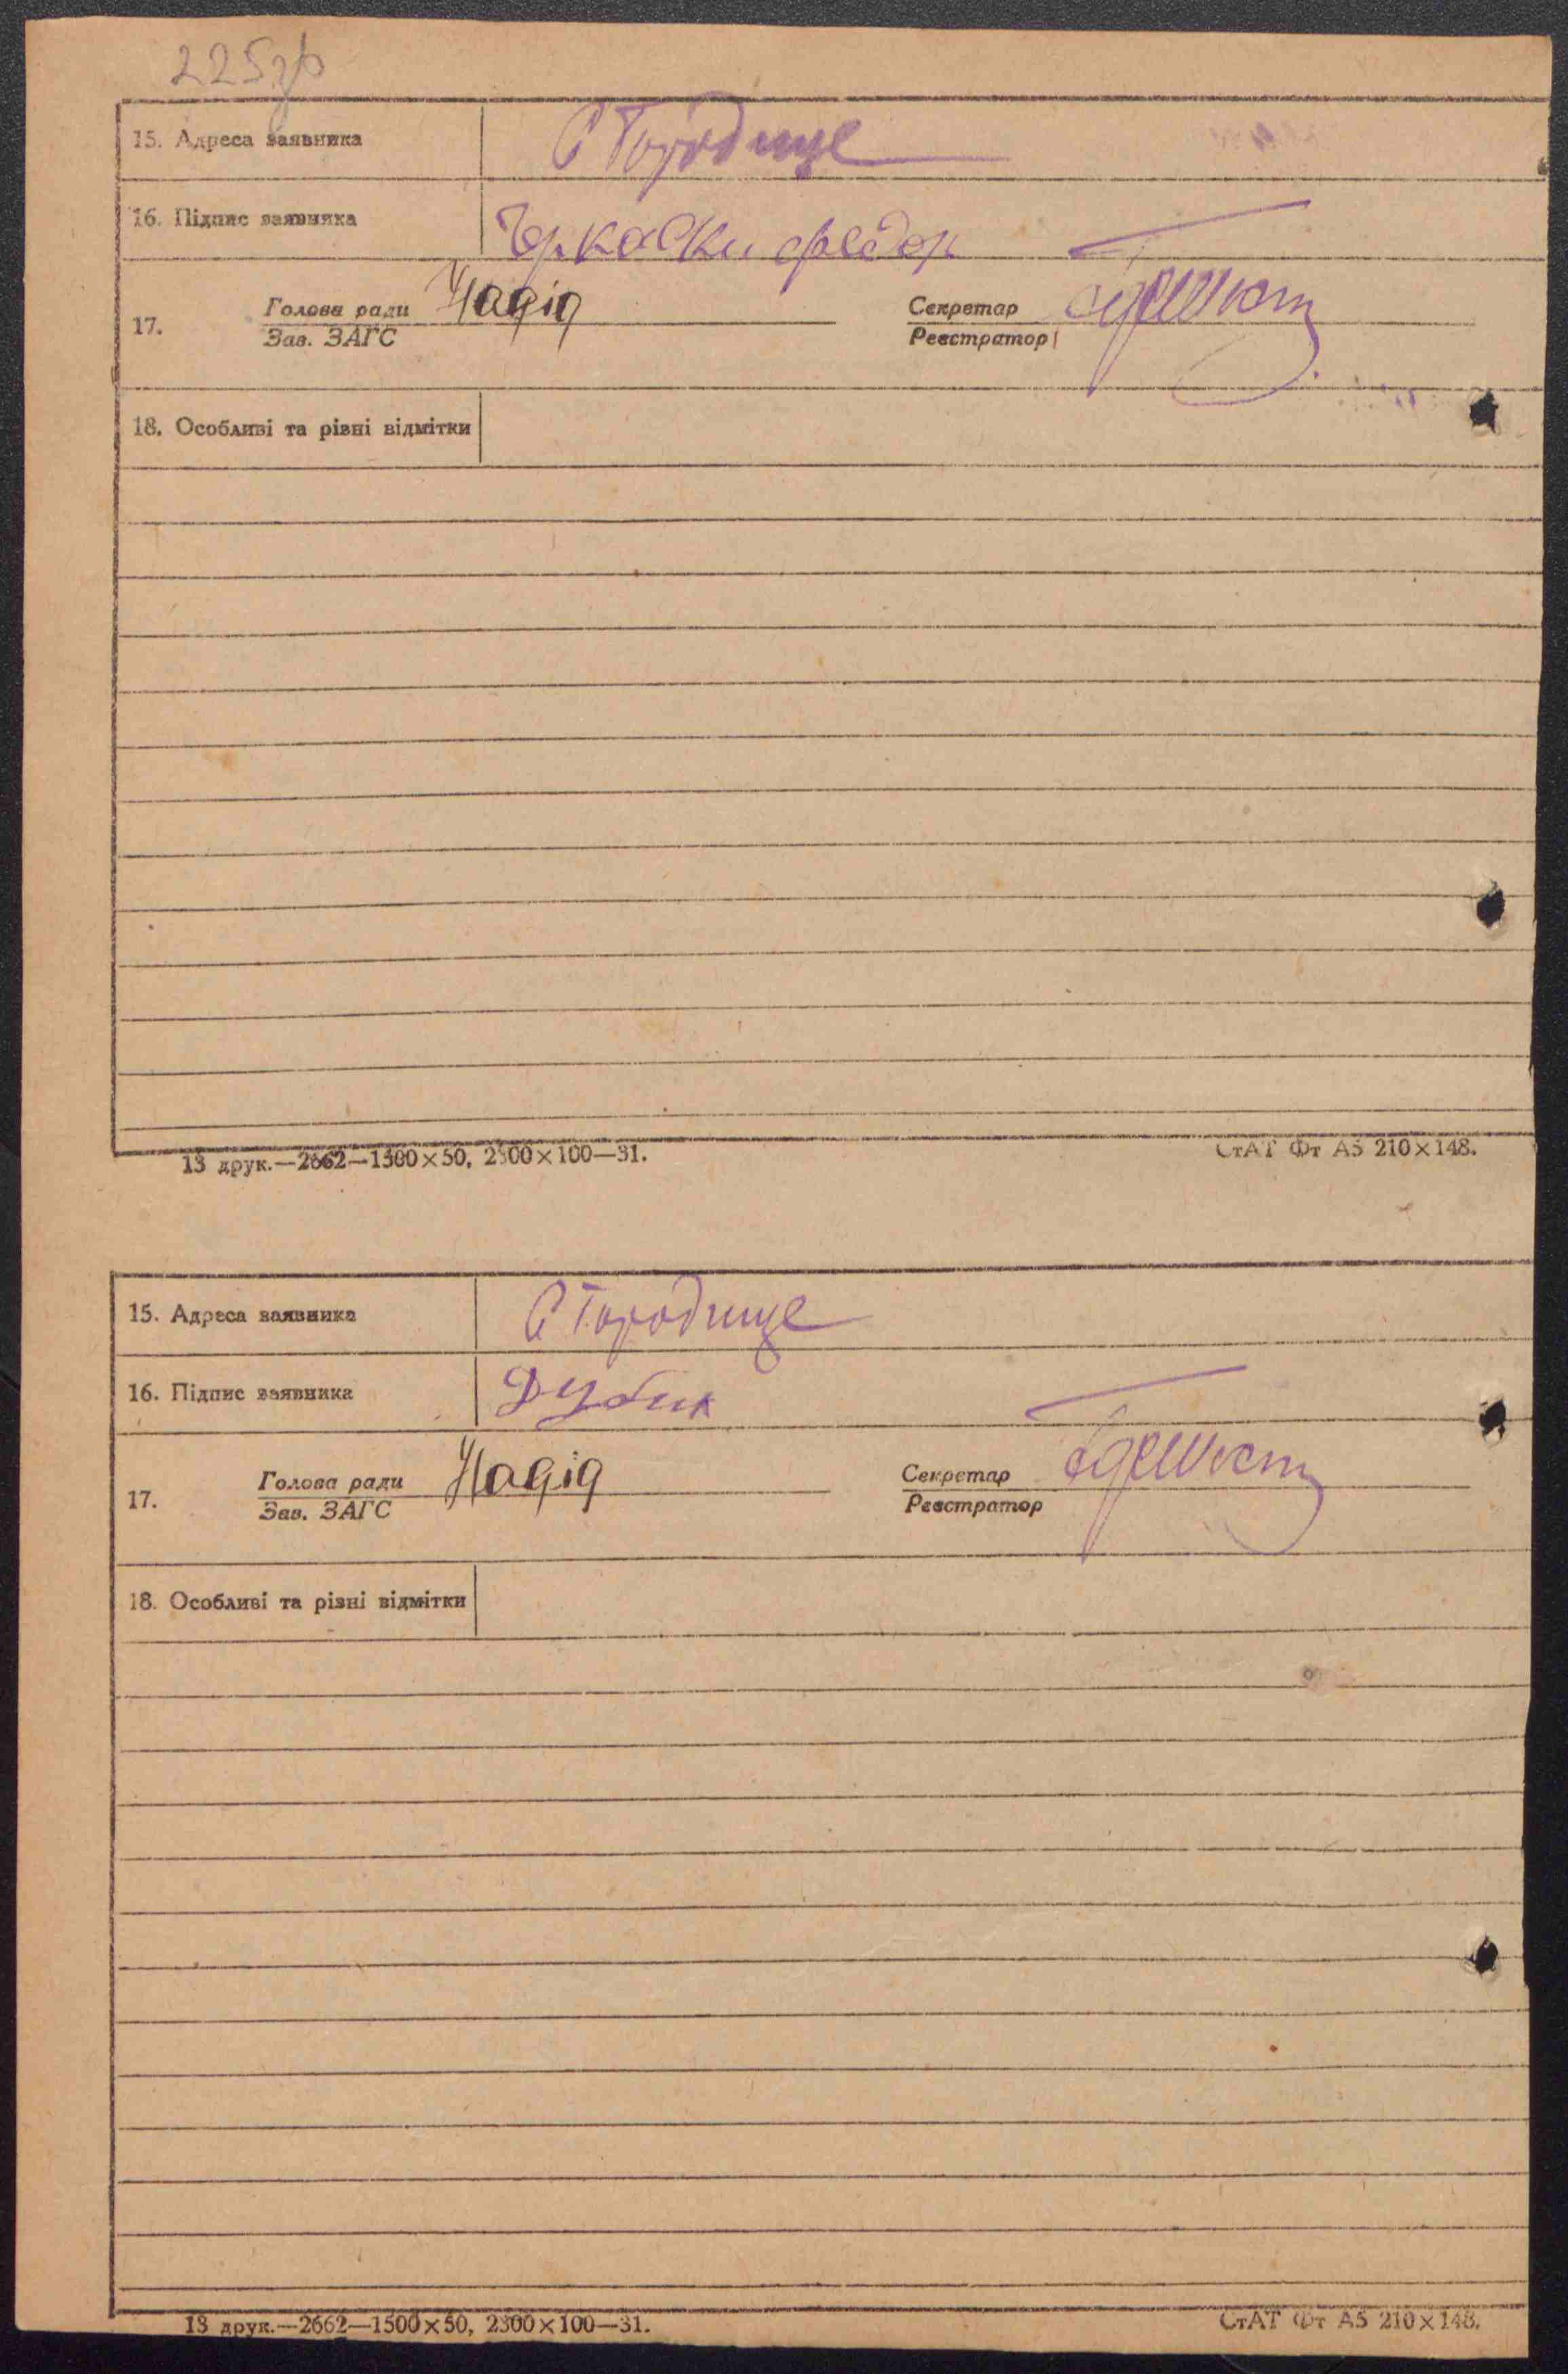 225зв
15. Адреса заявника С Городище
16. Підпис заявника Черкаски федор
17. Голова ради Надід Секретар
Зав. ЗАГС Реєстратор
18. Особливі та різні відмітки
13 друк.—2662—1500×50, 2300×100—31. СтАТ Фт А5 210×148.
15. Адреса заявника С Городище
16. Підпис заявника Дубик
17. Голова ради Надід Секретар
Зав. ЗАГС Реєстратор
18. Особливі та різні відмітки
13 друк.—2662—1500×50, 2300×100—31. СтАТ Фт А5 210×148.